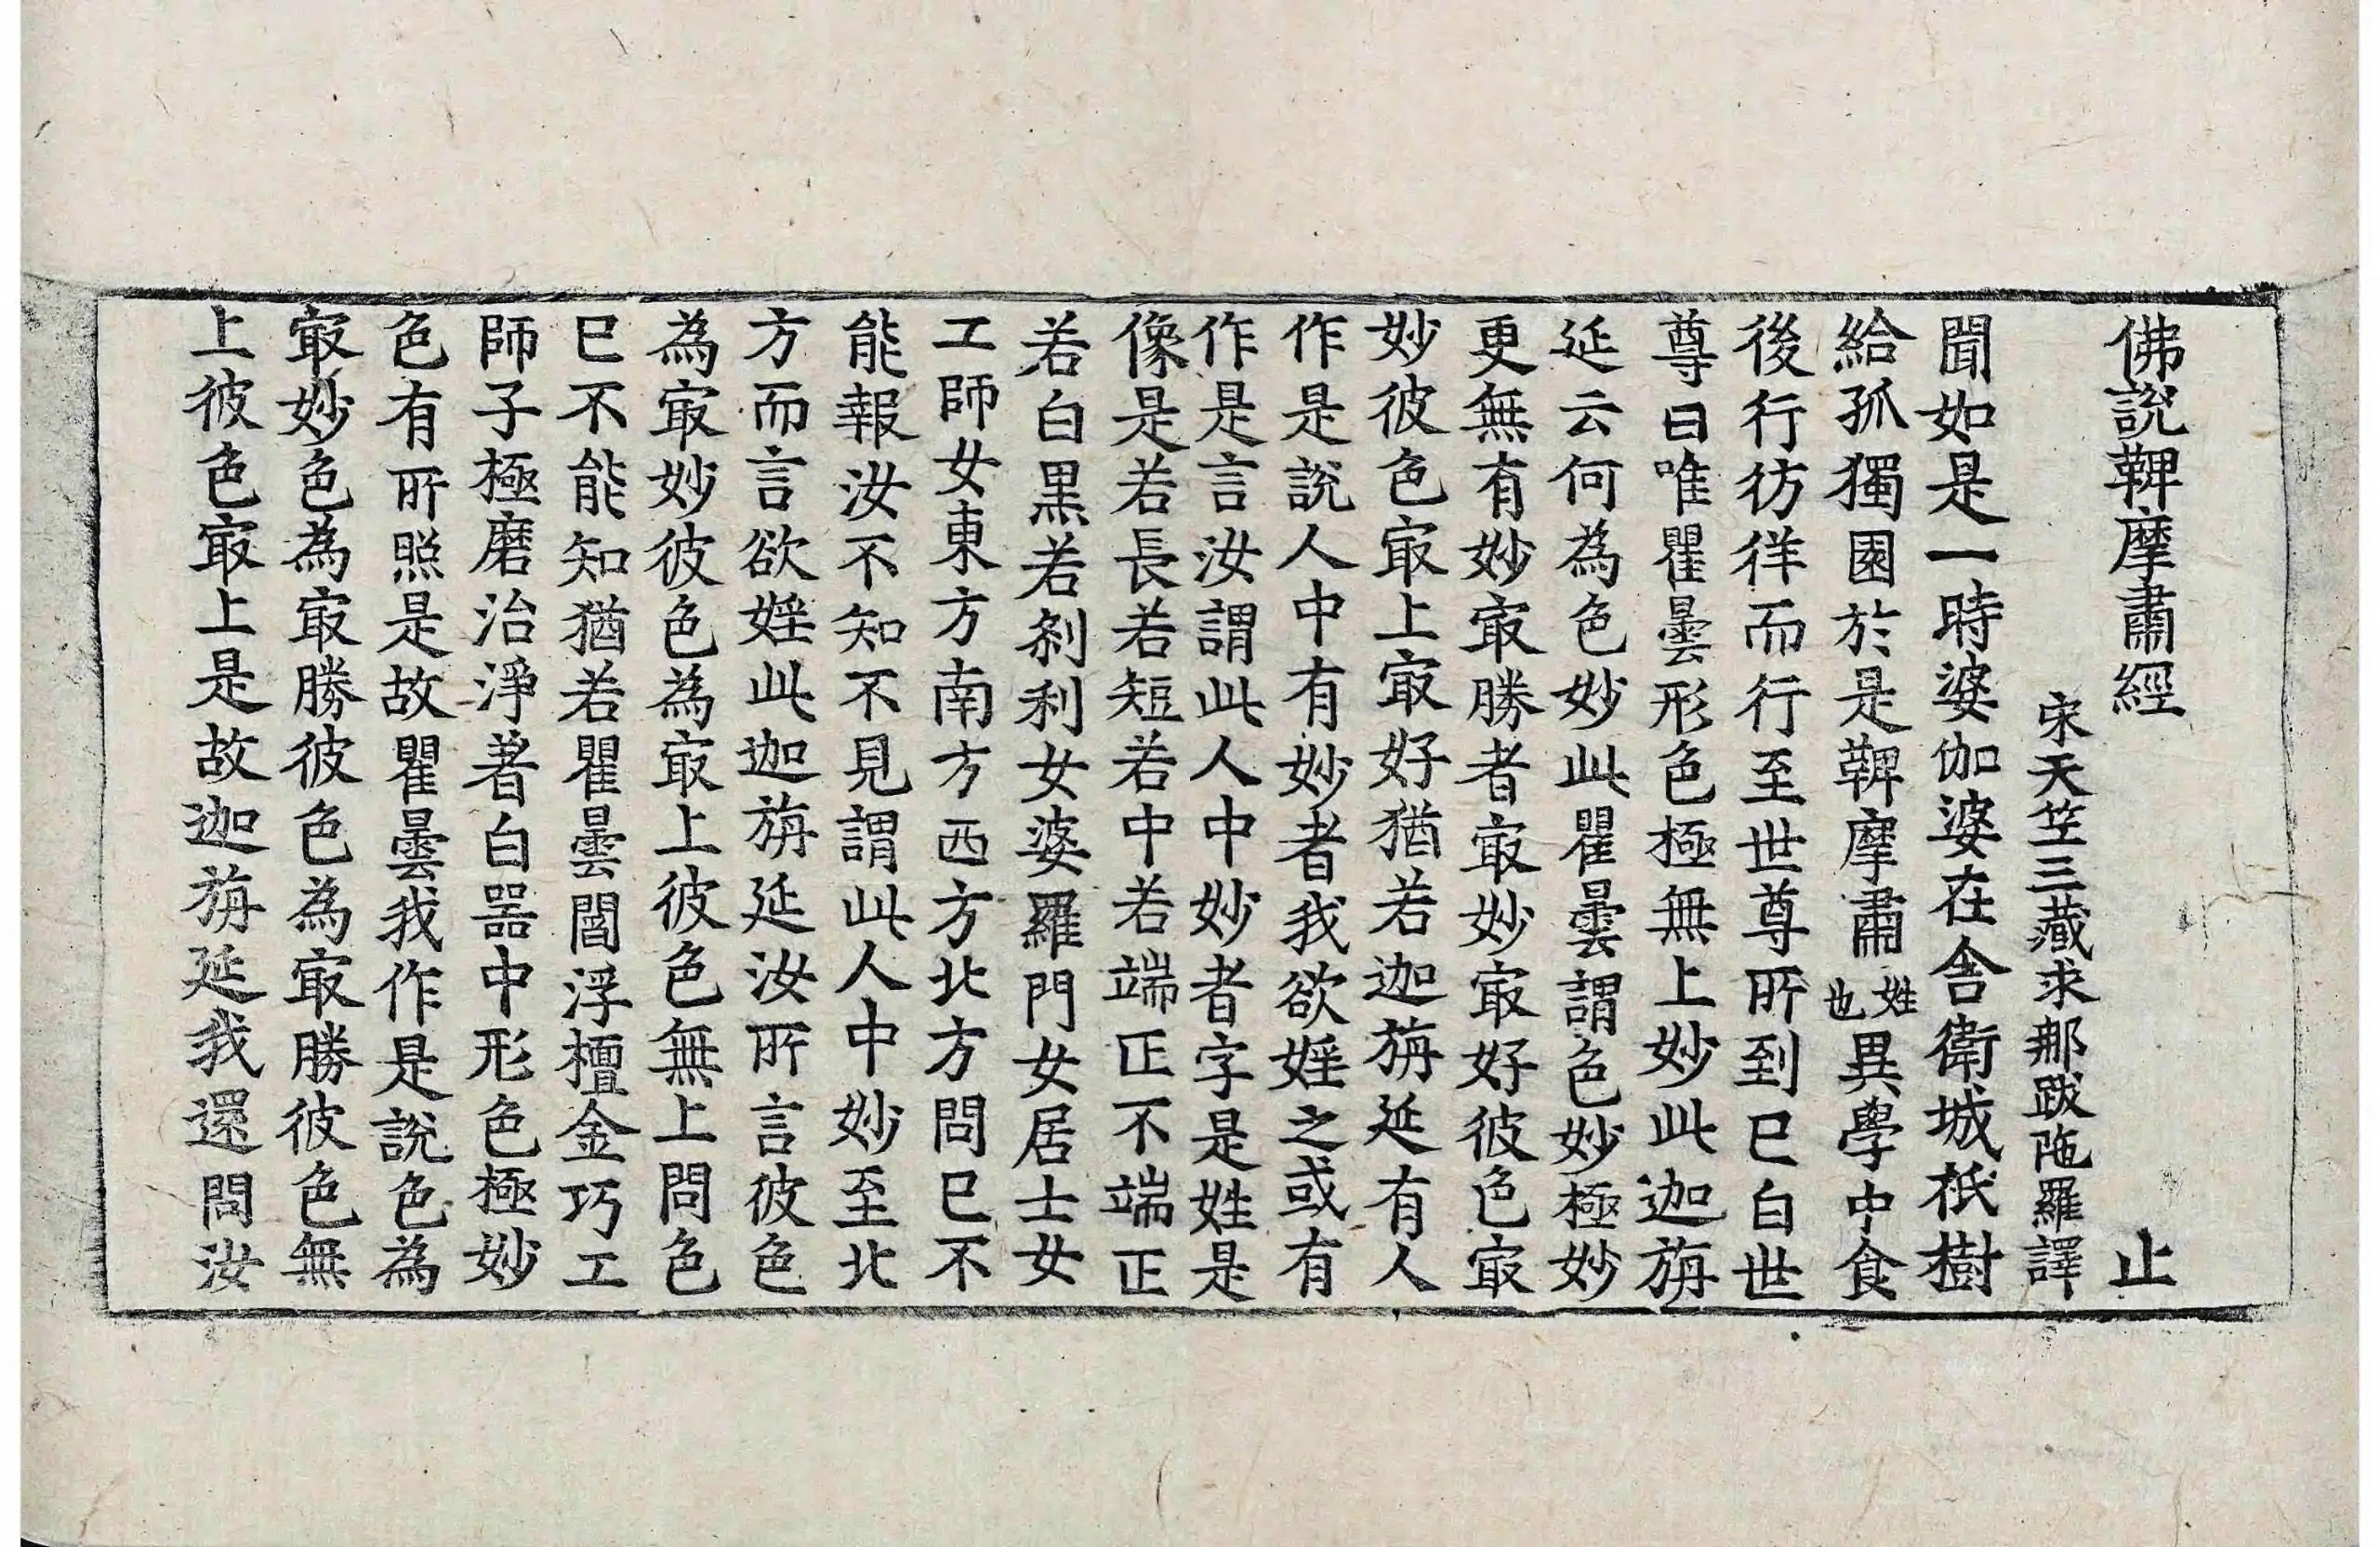 佛說鞞摩肅經 止
宋天竺三藏求那跋陁羅譯
聞如是一時婆伽婆在舍衛城祇樹
給孤獨園於是鞞摩肅姓也異學中食
後行彷徉而行至世尊所到已白世
尊曰唯瞿曇形色極無上妙此迦旃
延云何為色妙此瞿曇謂色妙極妙
更無有妙㝡勝者㝡妙㝡好彼色㝡
妙彼色㝡上㝡好猶若迦旃延有人
作是說人中有妙者我欲婬之或有
作是言汝謂此人中妙者字是姓是
像是若長若短若中若端正不端正
若白黒若剎利女婆羅門女居士女
工師女東方南方西方北方問已不
能報汝不知不見謂此人中妙至北
方而言欲婬此迦旃延汝所言彼色
為㝡妙彼色為㝡上彼色無上問色
已不能知猶若瞿曇閻浮檀金巧工
師子極磨治淨著白器中形色極妙
色有所照是故瞿曇我作是說色為
㝡妙色為㝡勝彼色為㝡勝彼色無
上彼色㝡上是故迦旃延我還問汝